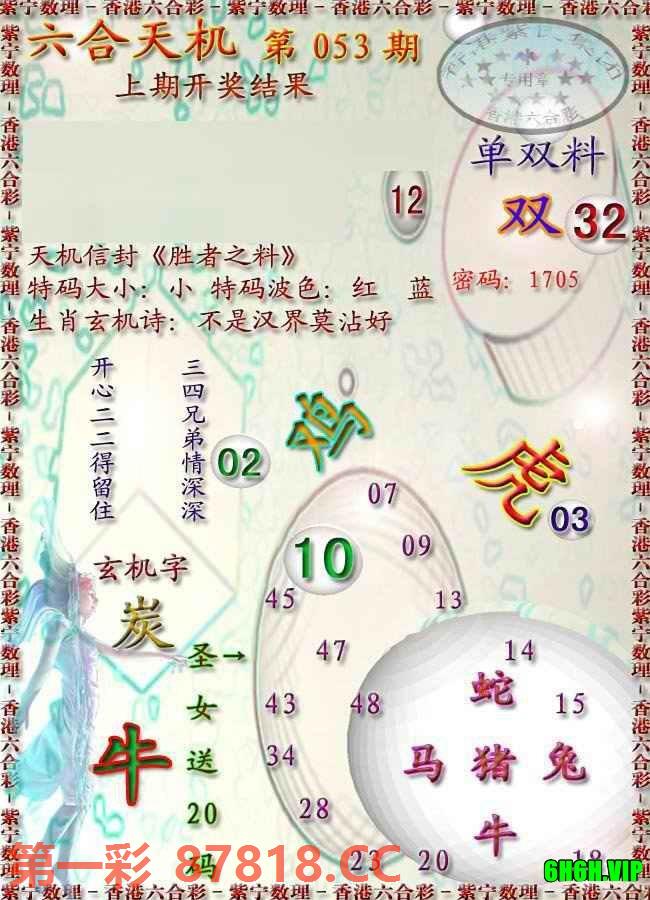 紫宁数理－香港六合彩－紫宁数理－香港六合彩－紫宁数理－香港六合彩
六合天机 第 053 期
上期开奖结果
专用章
香港六合彩
单双料
12
双 32
天机信封《胜者之料》
特码大小：小 特码波色：红 蓝
密码：1705
生肖玄机诗：不是汉界莫沾好
开心二二得留住
三四兄弟情深深
02
鸡
虎
03
07
10
09
玄机字
炭
45
13
圣→
女
送
20
码
47
14
蛇
43
48
15
牛
34
马 猪 兔
28
牛
23
20
18
第一彩 87818.CC
6H6H.VIP
紫宁数理－香港六合彩－紫宁数理－香港六合彩－紫宁数理－香港六合彩